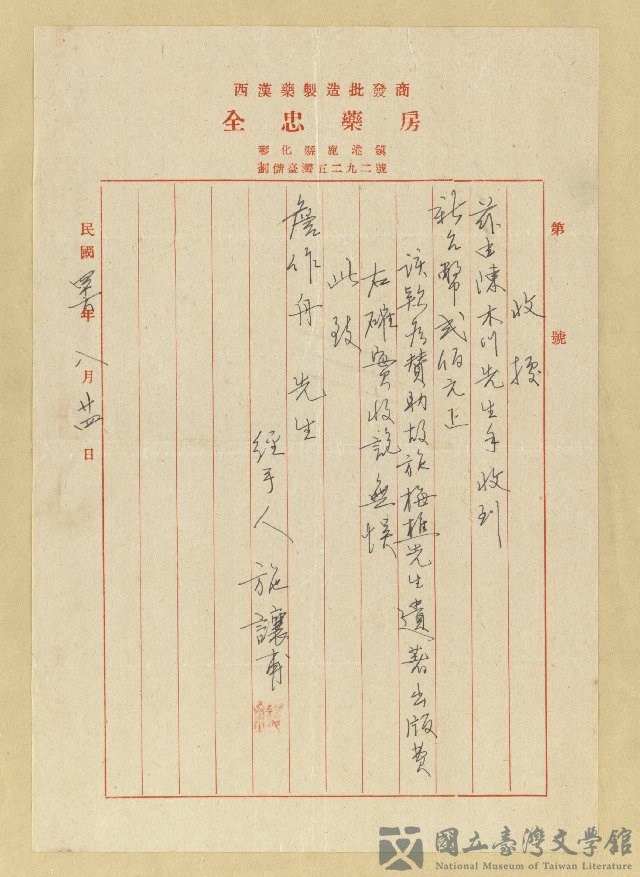 西漢藥製造批發商
全忠藥房
彰化縣鹿港鎮
劃儲臺灣五二九二號
第 號
收據
茲由陳木川先生手收到
新台幣貳佰元上
該款為贊助故施梅樵先生遺著出版費
右確實收訖無悮
此致
詹作舟先生
經手人 施讓甫
民國 年八月廿四日
國立臺灣文學館
National Museum of Taiwan Literature